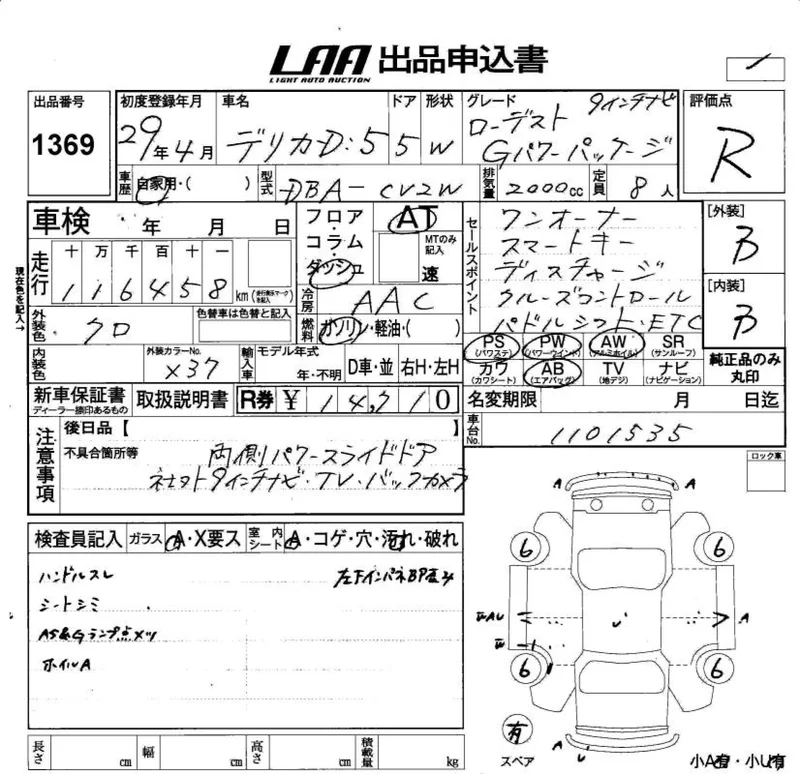 LAA 出品申込書
LIGHT AUTO AUCTION
出品番号
1369
初度登録年月
29年4月
車名
デリカD:5
ドア
5
形状
W
グレード
9インチナビ
ローデスト
Gパワーパッケージ
評価点
R
車歴
自家用・( )
型式
DBA-CV2W
排気量
2000cc
定員
8人
車検 年 月 日
フロア・コラム・ダッシュ
AT
MTのみ記入
速
セールスポイント
ワンオーナー
スマートキー
ディスチャージ
クルーズコントロール
パドルシフト・ETC
[外装]
B
[内装]
B
現在色を記入→
走行
十 万 千 百 十 一
1 1 6 4 5 8 km
(走行表示マークを記入)
冷房
AAC
外装色
クロ
色替車は色替と記入
燃料
ガソリン・軽油・( )
PS (パワステ)
PW (パワーウインド)
AW (アルミホイル)
SR (サンルーフ)
カワ (カワシート)
AB (エアバッグ)
TV (地デジ)
ナビ (ナビゲーション)
純正品のみ丸印
内装色
外装カラーNo.
X37
輸入車
モデル年式
年・不明
D車・並
右H・左H
新車保証書
ディーラー捺印あるもの
取扱説明書
R券 ¥ 14,710
名変期限 月 日迄
車台No.
1101535
注意事項
後日品【 】
不具合箇所等
両側パワースライドドア
社外9インチナビ・TV・バックカメラ
ロック車
検査員記入
ガラス
A・X要ス
室内シート
A・コゲ・穴・汚れ・破れ
ハンドルスレ
左下インパネBP歪み
シートシミ
ホイルA
A A
6 6
A
6 6
有
スペア
A U
小A有・小U有
長さ cm 幅 cm 高さ cm 積載量 kg